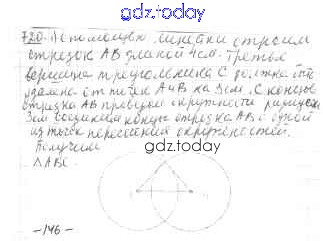 gdz.today
720. 1) с помощью линейки строим
отрезок AB длиной 4см. Третья
вершина треугольника C должна быть
удалена от точек A и B на 3см. С концов
отрезка AB проводим окружности радиусом
3см. Соединим концы отрезка AB с одной
из точек пересечения окружностей.
Получим
gdz.today
△ABC.
-146-
gdz.today